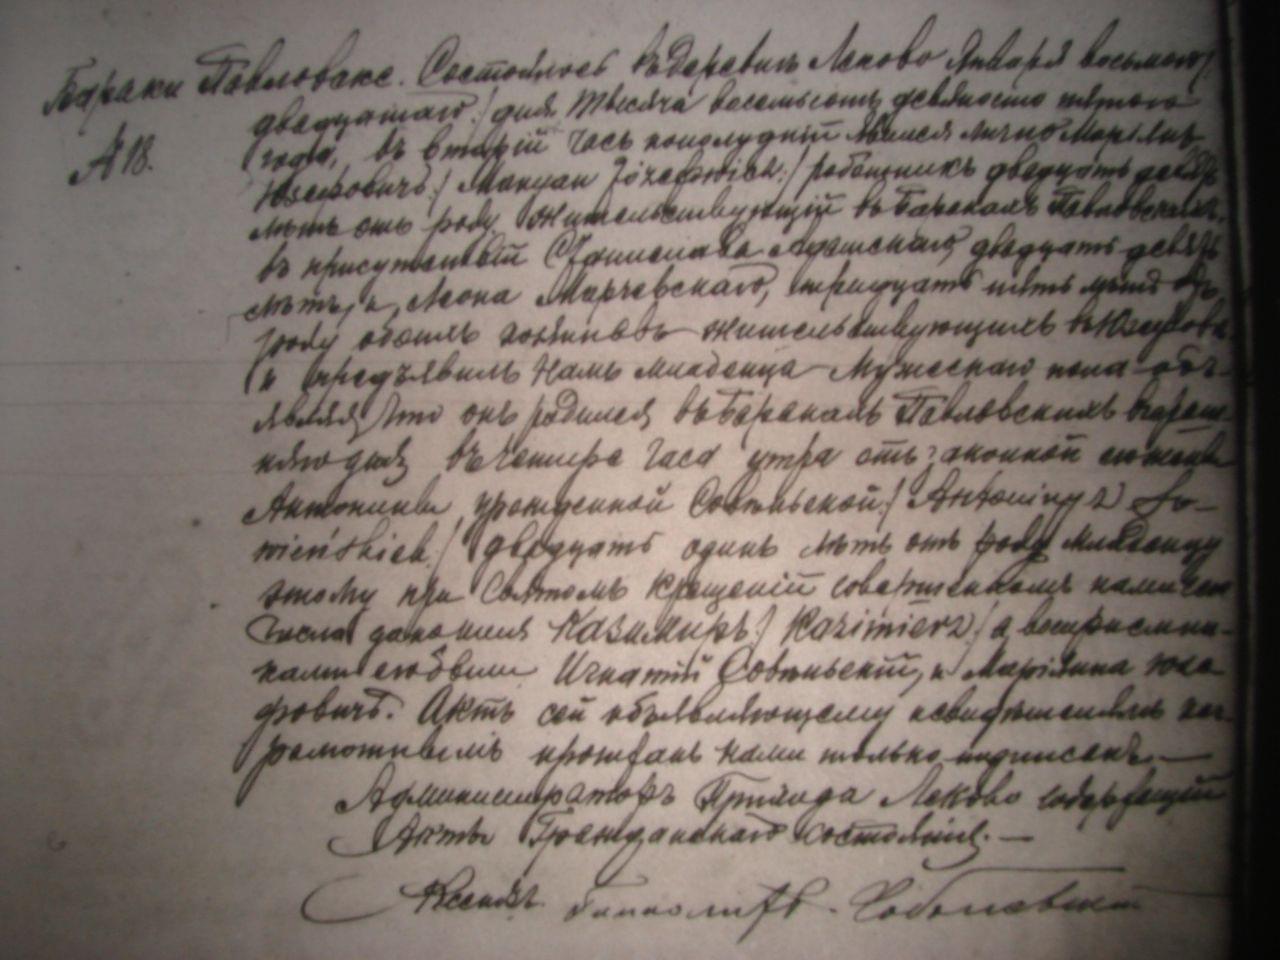 Бараки Павловске. Состоялось въ деревнѣ Леково Января восьмого/
двадцатаго/ дня тысяча восемьсотъ девяносто пятого
№ 18. года, въ второй часъ пополудній явился лично Маріянъ
Юзефовичъ / Maryan Józefowicz / работникъ двадцать девять
лѣтъ отъ роду жительствующій въ Баракахъ Павловскихъ,
въ присутствіи Станислава двадцать девять
лѣтъ, и Леона Марчевскаго, тридцать пять лѣтъ отъ
роду обоихъ жительствующихъ въ
и предъявилъ намъ младенца мужескаго пола объ-
являя, что онъ родился въ Баракахъ Павловскихъ
дня въ четыре часа утра отъ законной его жены
Антонины урожденной Совиньской / Antoniny z So-
wieńskich / двадцать одинъ лѣтъ отъ роду. Младенцу
этому при Святомъ Крещеніи совершенномъ нами сего
числа дано имя Казимиръ / Kazimierz / а воспріемни-
ками его были Игнатій Совиньскій, и Маріянна Юзе-
фовичъ. Актъ сей объявляющему и свидѣтелямъ не-
грамотнымъ прочтанъ нами только подписанъ.—
Администраторъ Прихода Леково содержащій
Акты Гражданскаго Состоянія.—
Ксендзъ